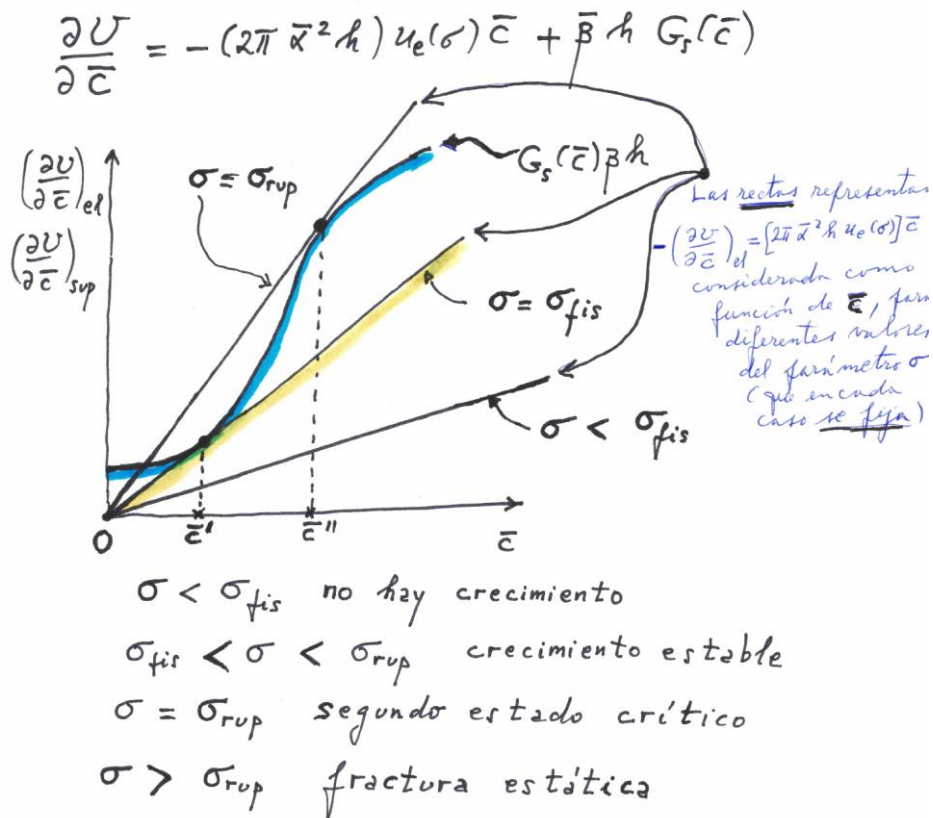 ∂U/∂c̄ = -(2π ᾱ² h) u_e(σ) c̄ + β̄ h G_s(c̄)
(∂U/∂c̄)_el
(∂U/∂c̄)_sup
σ = σ_rup
G_s(c̄) β h
σ = σ_fis
σ < σ_fis
O
c̄'
c̄''
c̄
Las rectas representan
-(∂U/∂c̄)_el = [2π ᾱ² h u_e(σ)] c̄
considerada como
función de c̄, para
diferentes valores
del parámetro σ
(que en cada
caso se fija)
σ < σ_fis no hay crecimiento
σ_fis < σ < σ_rup crecimiento estable
σ = σ_rup segundo estado crítico
σ > σ_rup fractura estática